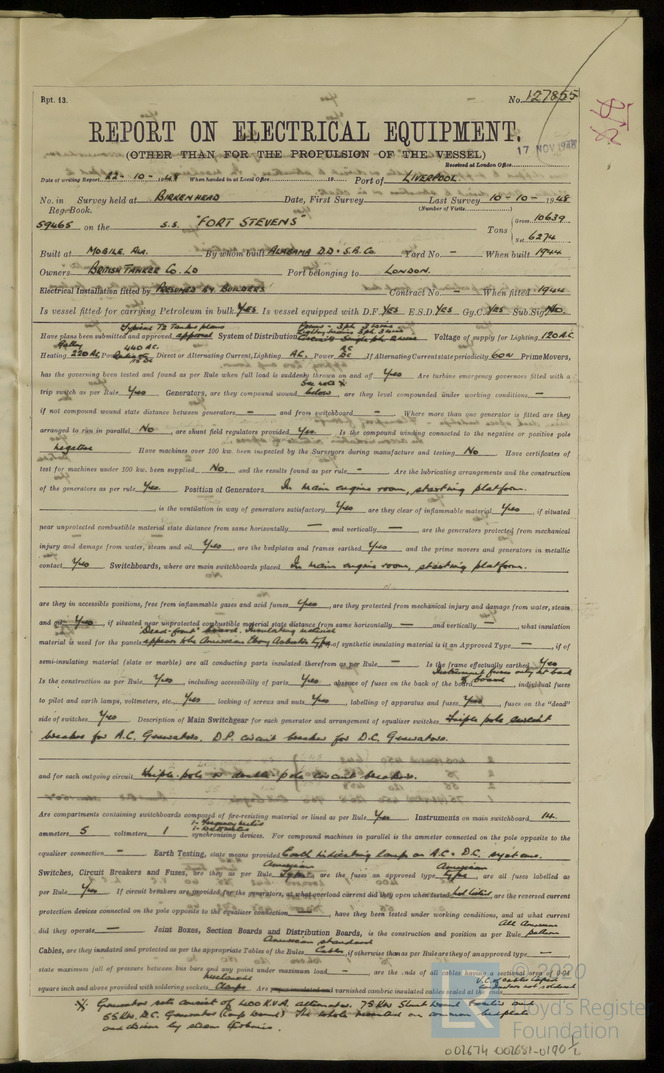 Rpt. 13.
No. 127855
REPORT ON ELECTRICAL EQUIPMENT.
17 NOV 1948
(OTHER THAN FOR THE PROPULSION OF THE VESSEL)
Received at London Office
Date of writing Report 22-10-1948 When handed in at Local Office 19 Port of LIVERPOOL
No. in Survey held at BIRKENHEAD Date, First Survey Last Survey 10-10-1948
Reg. Book. (Number of Visits
59465 on the S.S. "FORT STEVENS" Tons Gross 10639
Net 6274
Built at MOBILE. Ala. By whom built ALABAMA D.D. & S.B. Co. Yard No. — When built 1944
Owners BRITISH TANKER Co. LD Port belonging to LONDON.
Electrical Installation fitted by PRESUMED BY BUILDERS Contract No. — When fitted 1944
Is vessel fitted for carrying Petroleum in bulk YES Is vessel equipped with D.F. YES E.S.D. YES Gy.C. YES Sub.Sig. NO.
Typical T2 Tanker plans
Have plans been submitted and approved System of Distribution Voltage of supply for Lighting 120 AC
Galley 440 AC.
Heating 220 AC Power Direct or Alternating Current, Lighting AC. Power AC DC If Alternating Current state periodicity 60 Prime Movers,
has the governing been tested and found as per Rule when full load is suddenly thrown on and off Yes Are turbine emergency governors fitted with a
See note ※
trip switch as per Rule Yes Generators, are they compound wound below, are they level compounded under working conditions —,
if not compound wound state distance between generators — and from switchboard — Where more than one generator is fitted are they
arranged to run in parallel No, are shunt field regulators provided Yes. Is the compound winding connected to the negative or positive pole
negative Have machines over 100 kw. been inspected by the Surveyors during manufacture and testing No Have certificates of
test for machines under 100 kw. been supplied No and the results found as per rule — Are the lubricating arrangements and the construction
of the generators as per rule Yes Position of Generators In main engine room, starting platform.
, is the ventilation in way of generators satisfactory Yes are they clear of inflammable material Yes, if situated
near unprotected combustible material state distance from same horizontally — and vertically —, are the generators protected from mechanical
injury and damage from water, steam and oil Yes, are the bedplates and frames earthed Yes and the prime movers and generators in metallic
contact Yes Switchboards, where are main switchboards placed In main engine room, starting platform.
are they in accessible positions, free from inflammable gases and acid fumes Yes, are they protected from mechanical injury and damage from water, steam
and oil Yes, if situated near unprotected combustible material state distance from same horizontally — and vertically —, what insulation
Dead-front board. Insulating material
material is used for the panels appears to be American Ebony Asbestos type, if of synthetic insulating material is it an Approved Type —, if of
semi-insulating material (slate or marble) are all conducting parts insulated therefrom as per Rule — Is the frame effectually earthed Yes
Instrument fuses only at back
Is the construction as per Rule Yes, including accessibility of parts Yes, absence of fuses on the back of the board of board, individual fuses
to pilot and earth lamps, voltmeters, etc. Yes, locking of screws and nuts Yes, labelling of apparatus and fuses Yes, fuses on the "dead"
side of switches Yes Description of Main Switchgear for each generator and arrangement of equaliser switches Triple pole circuit
breaker for A.C. Generators. D.P. circuit breaker for D.C. Generators.
and for each outgoing circuit Triple-pole or double-pole circuit breakers.
Are compartments containing switchboards composed of fire-resisting material or lined as per Rule Yes Instruments on main switchboard 14.
ammeters 5 voltmeters 1 synchronising devices. For compound machines in parallel is the ammeter connected on the pole opposite to the
equaliser connection — Earth Testing, state means provided Earth indicating lamps on A.C. & D.C. systems.
American American
Switches, Circuit Breakers and Fuses, are they as per Rule Type, are the fuses an approved type type, are all fuses labelled as
per Rule Yes If circuit breakers are provided for the generators, at what overload current did they open when tested Not tested, are the reversed current
protection devices connected on the pole opposite to the equaliser connection —, have they been tested under working conditions, and at what current
All American
did they operate — Joint Boxes, Section Boards and Distribution Boards, is the construction and position as per Rule pattern
American standard
Cables, are they insulated and protected as per the appropriate Tables of the Rules Cable, if otherwise than as per Rule are they of an approved type —
state maximum fall of pressure between bus bars and any point under maximum load —, are the ends of all cables having a sectional area of 0.04
square inch and above provided with soldering sockets Mechanical Clamps Are varnished cambric insulated cables sealed at the ends
※ Generator sets consist of 400 K.V.A. alternator. 75 Kw. Shunt wound and
55 Kw. D.C. Generator (comp wound) The whole mounted on common bedplate
and driven by steam turbine.
© 2020
Lloyd's Register
Foundation
002674-002681-0190 1/2